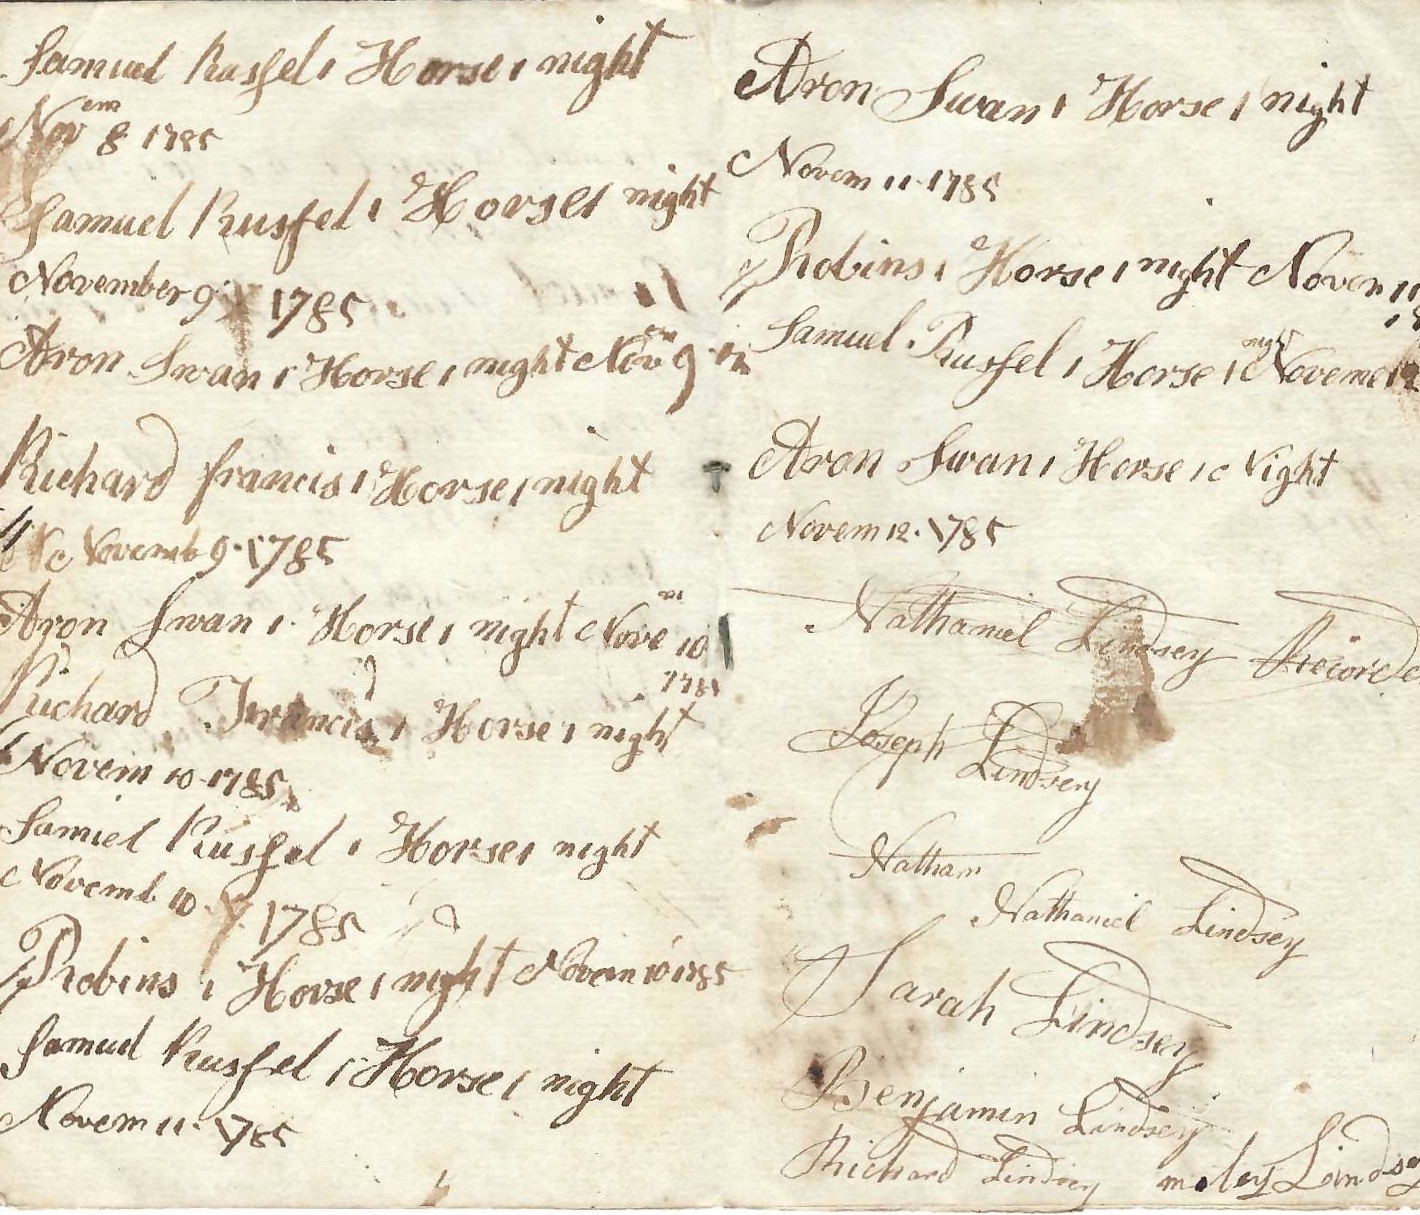 Samuel Russel 1 Horse 1 night
Nov em 8 1785
Samuel Russel 1 Horse 1 night
November 9 1785
Aron Swan 1 Horse 1 night Nov em 9
Richard francis 1 Horse 1 night
Novemb 9 1785
Aron Swan 1 Horse 1 night Nove m 10
1785
Richard Francis 1 Horse 1 night
Novem 10 1785
Samuel Russel 1 Horse 1 night
Novemb 10 1785
Robins 1 Horse 1 night Novem 10 1785
Samuel Russel 1 Horse 1 night
Novem 11 1785
Aron Swan 1 Horse 1 night
Novem 11 1785
Robins 1 Horse 1 night Novem 11
Samuel Russel 1 Horse 1 night Noveme 12
Aron Swan 1 Horse 1 Night
Novem 12. 1785
Nathaniel Lindsey Recorde
Joseph Lindsey
Nathan
Nathaniel Lindsey
Sarah Lindsey
Benjamin Lindsey
Richard Lindsey Lindsey